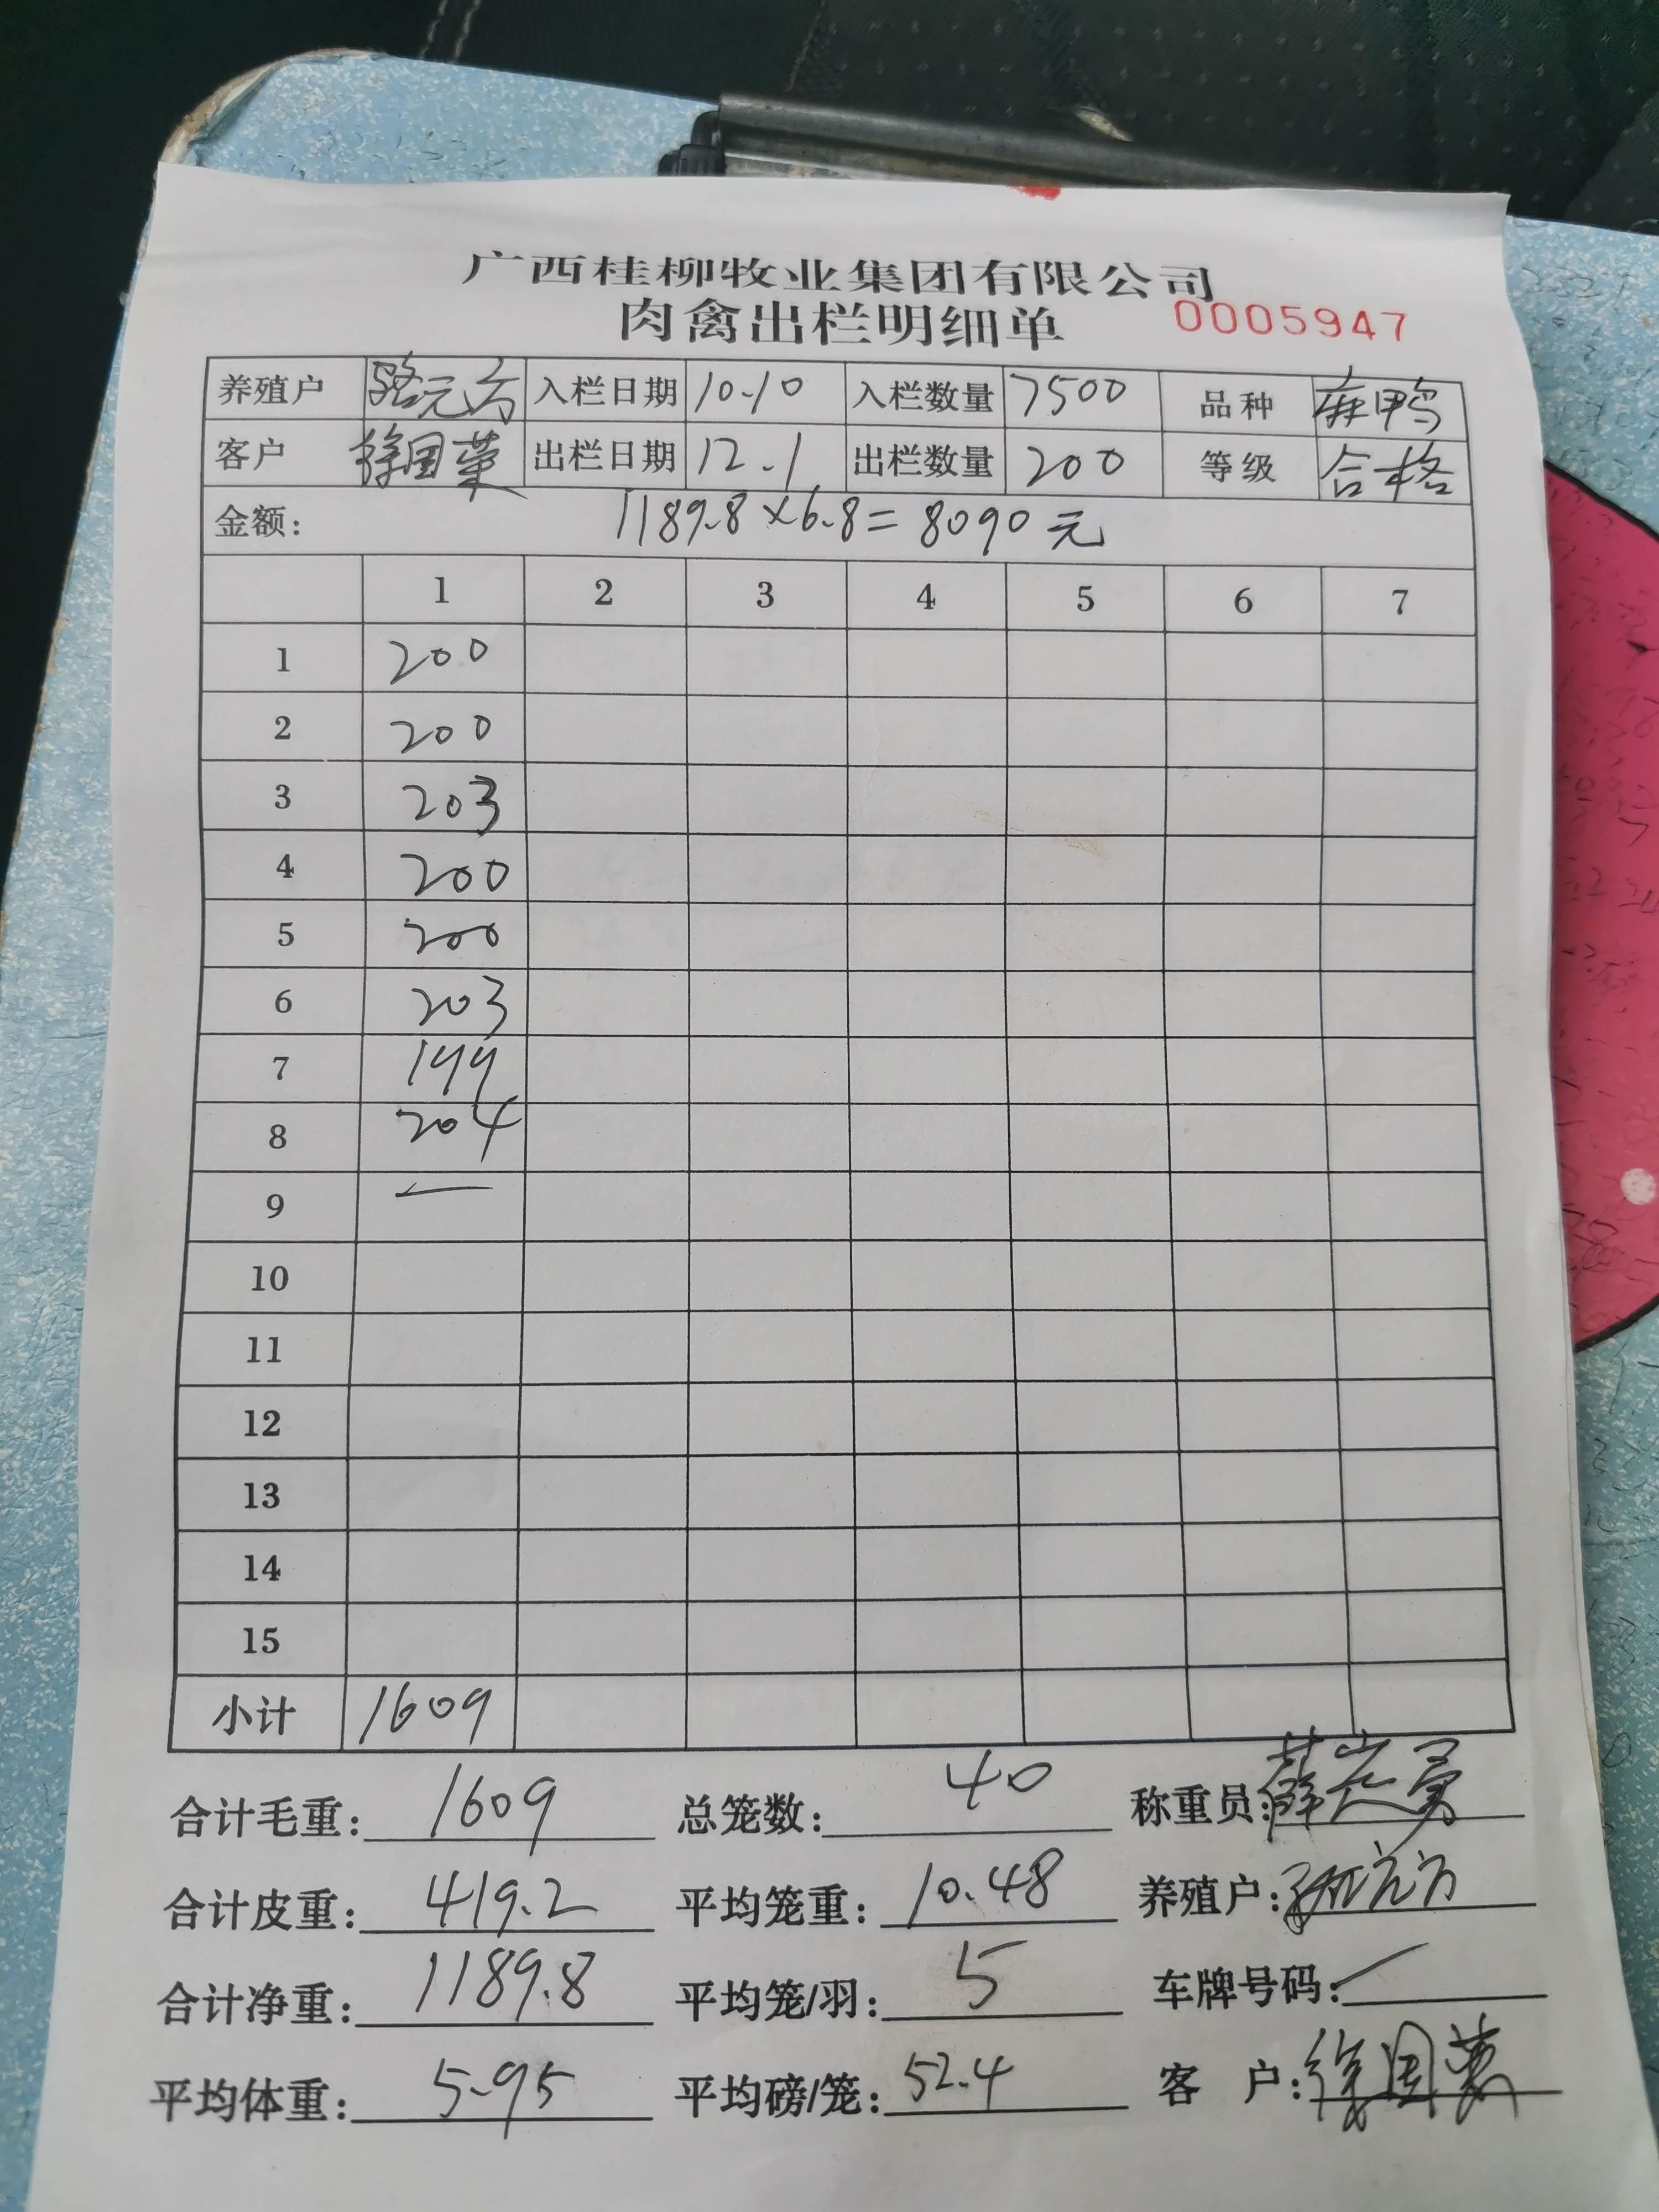 广西桂柳牧业集团有限公司
肉禽出栏明细单 0005947
养殖户 路元方 入栏日期 10.10 入栏数量 7500 品种 麻鸭
客户 徐国荣 出栏日期 12.1 出栏数量 200 等级 合格
金额: 1189.8×6.8=8090元
1 2 3 4 5 6 7
1 200
2 200
3 203
4 200
5 200
6 203
7 199
8 204
9 —
10
11
12
13
14
15
小计 1609
合计毛重: 1609 总笼数: 40 称重员:
合计皮重: 419.2 平均笼重: 10.48 养殖户:
合计净重: 1189.8 平均笼/羽: 5 车牌号码: /
平均体重: 5.95 平均磅/笼: 52.4 客 户: